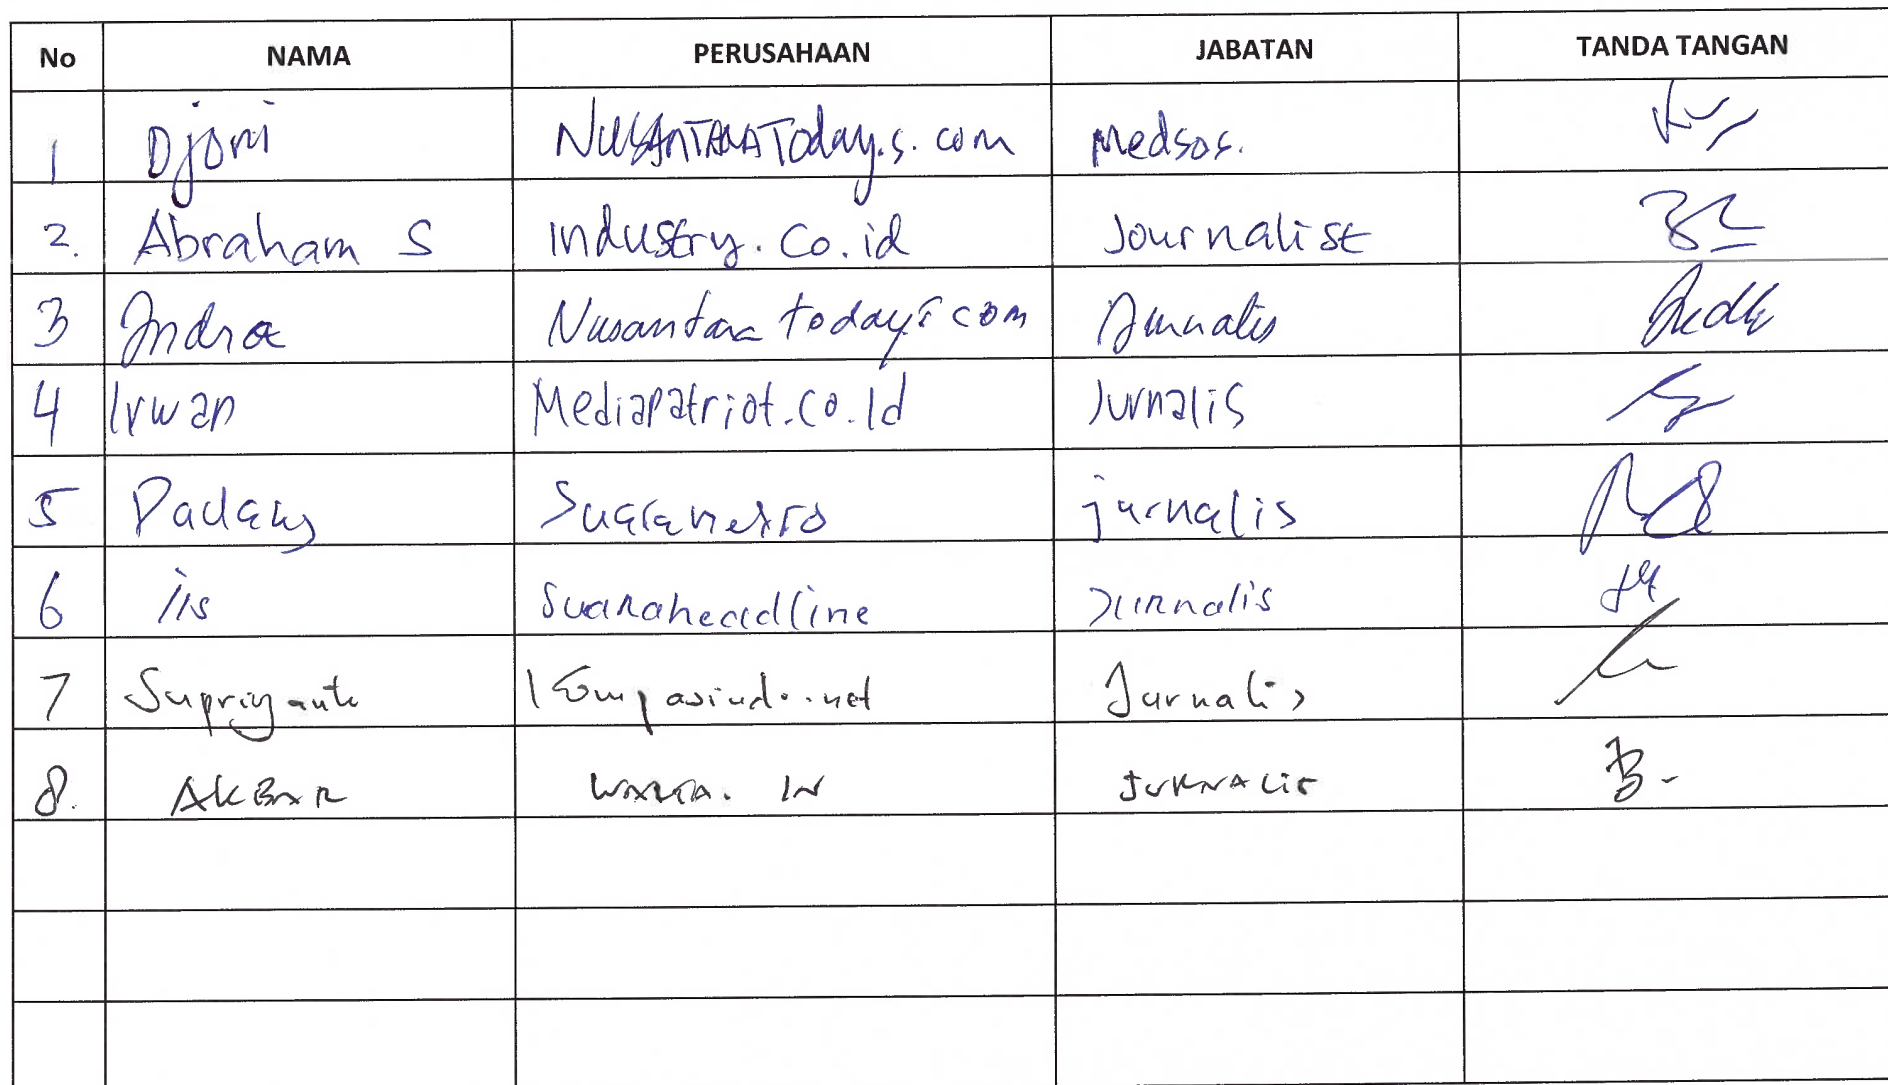 No NAMA PERUSAHAAN JABATAN TANDA TANGAN
1 Djoni NUSANTARATOday.s.com Medsos.
2. Abraham S industry.co.id Journalist
3 Indra Nusantara todays com Jurnalis
4 Irwan Mediapatriot.co.id Jurnalis
5 Dadang Suarametro jurnalis
6 iis Suaraheadline Jurnalis
7 Supriyanto Kompasindo.net Jurnalis
8. AKBAR WARTA. IN JURNALIS